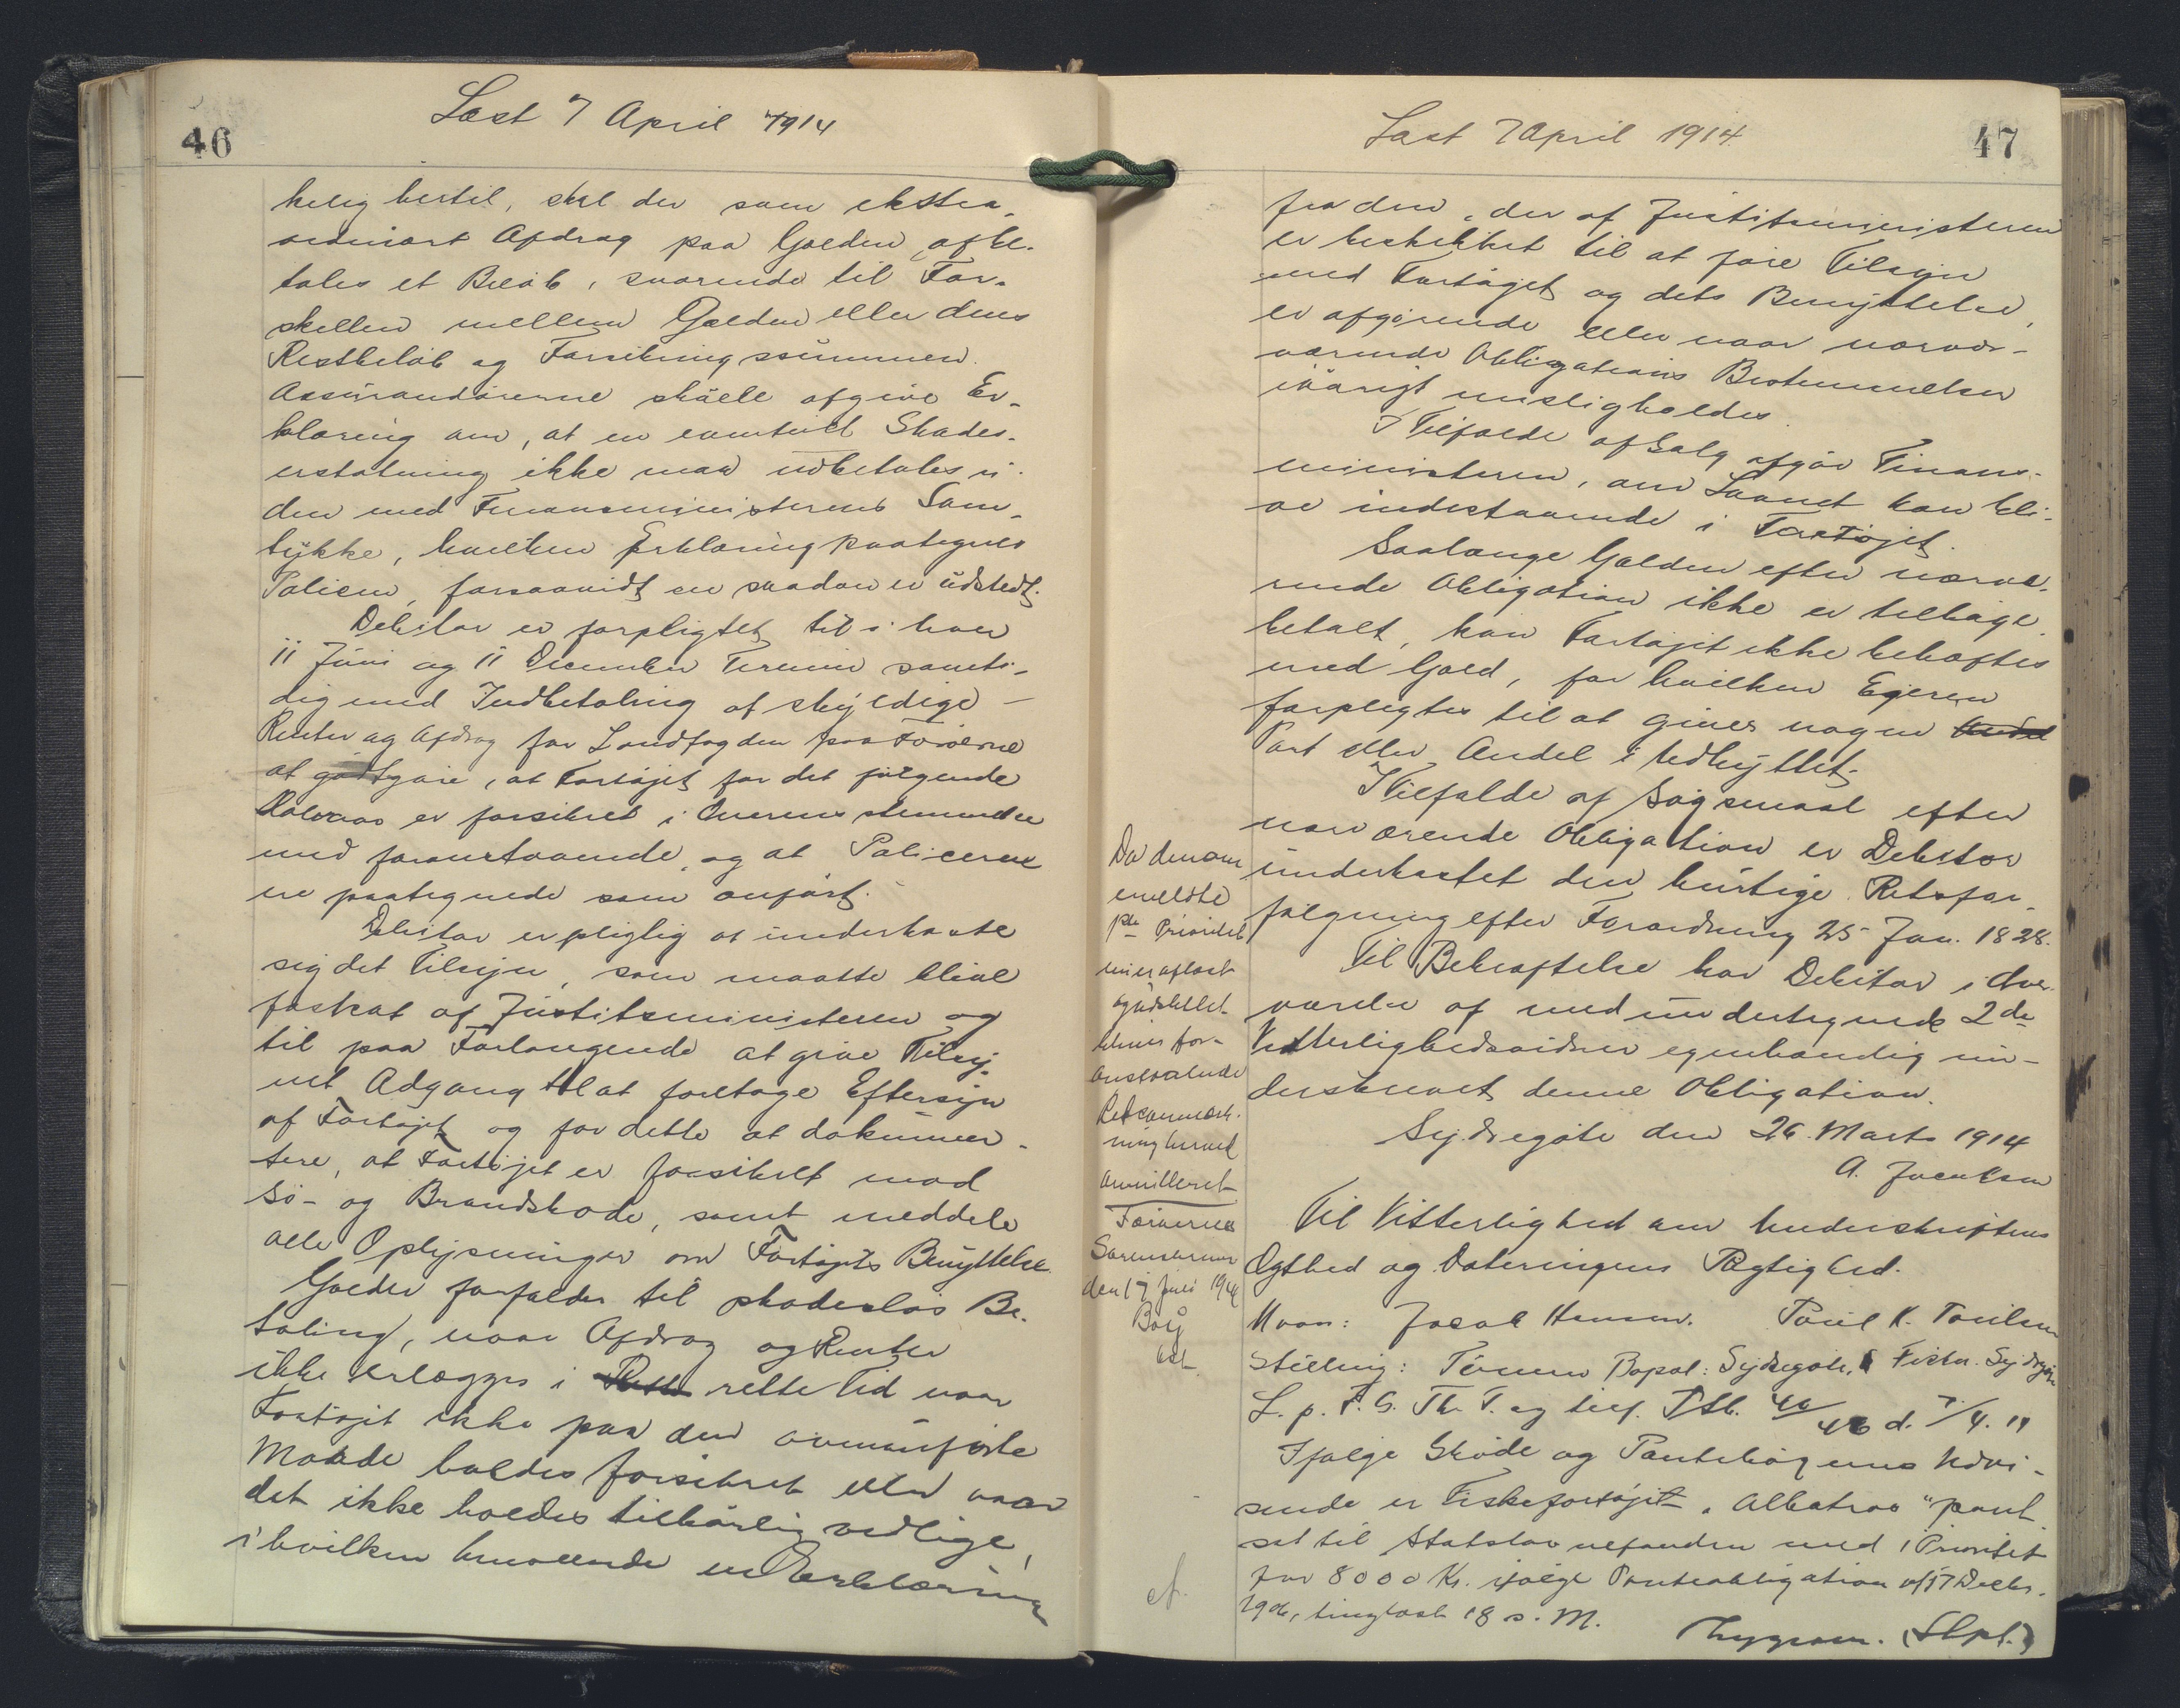 46
Læst 7 April 1914
kelig hertil, skal der som ekstra-
ordinært Afdrag paa Gælden afbe-
tales et Beløb, svarende til For-
skellen mellem Gælden eller dens
Restbeløb og Forsikringssummen.
Assurandørerne skulle afgive Er-
klæring om, at en eventuel Skades-
erstatning ikke maa udbetales u-
den med Finansministerens Sam-
tykke, hvilken Erklæring paategnes
Policen, forsaavidt en saadan er udstedt.
Debitor er forpligtet til i hver
11 Juni og 11 December Termin samti-
dig med Indbetaling af skyldige
Renter og Afdrag for Landfogden paa Færøerne
at godtgøre, at Fartøjet for det følgende
Halvaar er forsikret i Overensstemmelse
med foranstaaende, og at Policerne
ere paategnede som anført.
Debitor er pligtig at underkaste
sig det Tilsyn, som maatte blive
fastsat af Justitsministeren og
til paa Forlangende at give Tilsy-
net Adgang til at foretage Eftersyn
af Fartøjet og for dette at dokumen-
tere, at Fartøjet er forsikret mod
Sø- og Brandskade, samt meddele
alle Oplysninger om Fartøjets Benyttelse.
Gælden forfalder til skadesløs Be-
taling, naar Afdrag og Renter
ikke erlægges i rette Tid naar
Fartøjet ikke paa den ovenanførte
Maade holdes forsikret eller naar
det ikke holdes tilbørlig vedlige,
i hvilken henseende en Erklæring
47
Læst 7 April 1914
fra den, der af Justitsministeren
er beskikket til at føre Tilsyn
med Fartøjet og dets Benyttelse,
er afgørende eller naar nærvæ-
rende Obligations Bestemmelser
iøvrigt misligholdes.
I Tilfælde af Salg afgør Finans-
ministeren, om Laanet kan bli-
ve indestaaende i Fartøjet.
Saalænge Gælden efter nærvæ-
rende Obligation ikke er tilbage
betalt, kan Fartøjet ikke behæftes
med Gæld, for hvilken Ejeren
forpligtes til at give nogen
Part eller Andel i Udbyttet.
I Tilfælde af Søgsmaal efter
nærværende Obligation er Debitor
underkastet den hurtige Retsfor-
følgning efter Forordning 25 Jan. 1828.
Til Bekræftelse har Debitor i Over-
værelse af medundertegnede 2de
Vitterlighedsvidner egenhændig un-
derskrevet denne Obligation.
Sydregøte den 26. Marts 1914
A. Joensen
Til Vitterlighed om Underskriftens
Ægthed og Dateringens Rigtighed.
Navn: Jacob Hansen. Poul K. Poulsen
Stilling: Tømrer Bopæl: Sydregøte, Fisker. Sydregøte
L. p. F. G. Th. T. og Ptb. 40/46 d. 7/4. 14
Ifølge Skøde og Pantebøgernes Udvi-
sende er Fiskefartøjet „Albatros" pant-
sat til Statslaanefonden med 1 Prioritet
for 8000 Kr. ifølge Panteobligation af 17 Decbr.
1906, tinglæst 18 s. M.
Thygesen. (Stpl.)
Da den om
meldte
Prioritet
nu er aflæst
og udslettet
bliver for-
anstaaende
Retsanmærk-
ning herved
annulleret
Færøernes
Sorenskriver
den 17 Juli 1914
Bøg
cst.
cf.